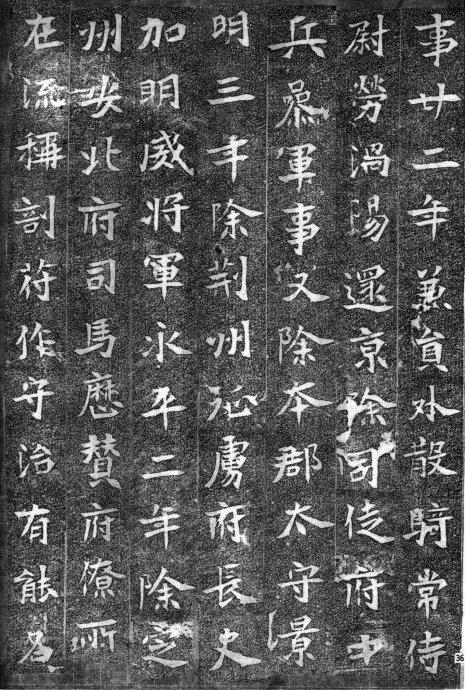 事廿二年兼員外散騎常侍
尉勞渦陽還京除司徒府中
兵叅軍事又除本郡太守景
明三年除荆州征虜府長史
加明威將軍永平二年除定
州安北府司馬歷賛府僚所
在流稱剖苻作守治有能名
36